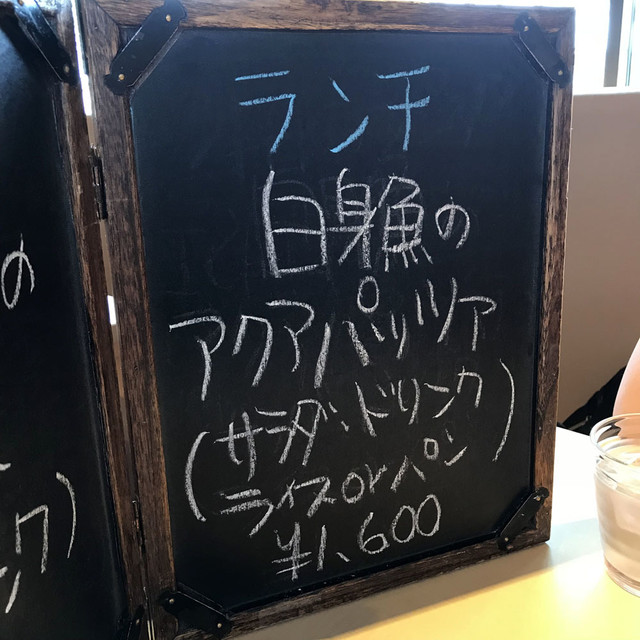 ランチ
白身魚の
アクアパッツァ
(サラダ、ドリンク)
ライスorパン
¥1,600
の
ンク)